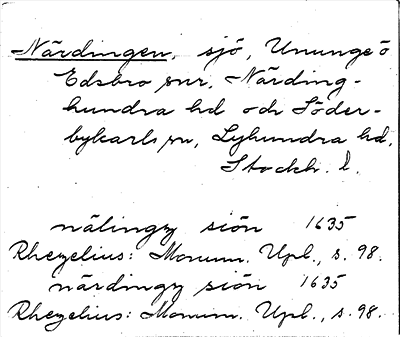 Närdingen, sjö, Ununge o
Edsbro snr, Närding-
hundra hd och Söder-
bykarls sn, Lyhundra hd,
Stockh. l.
nälingz siön 1635
Rhezelius: Monum. Upl., s. 98.
närdingz siön 1635
Rhezelius: Monum. Upl., s. 98.